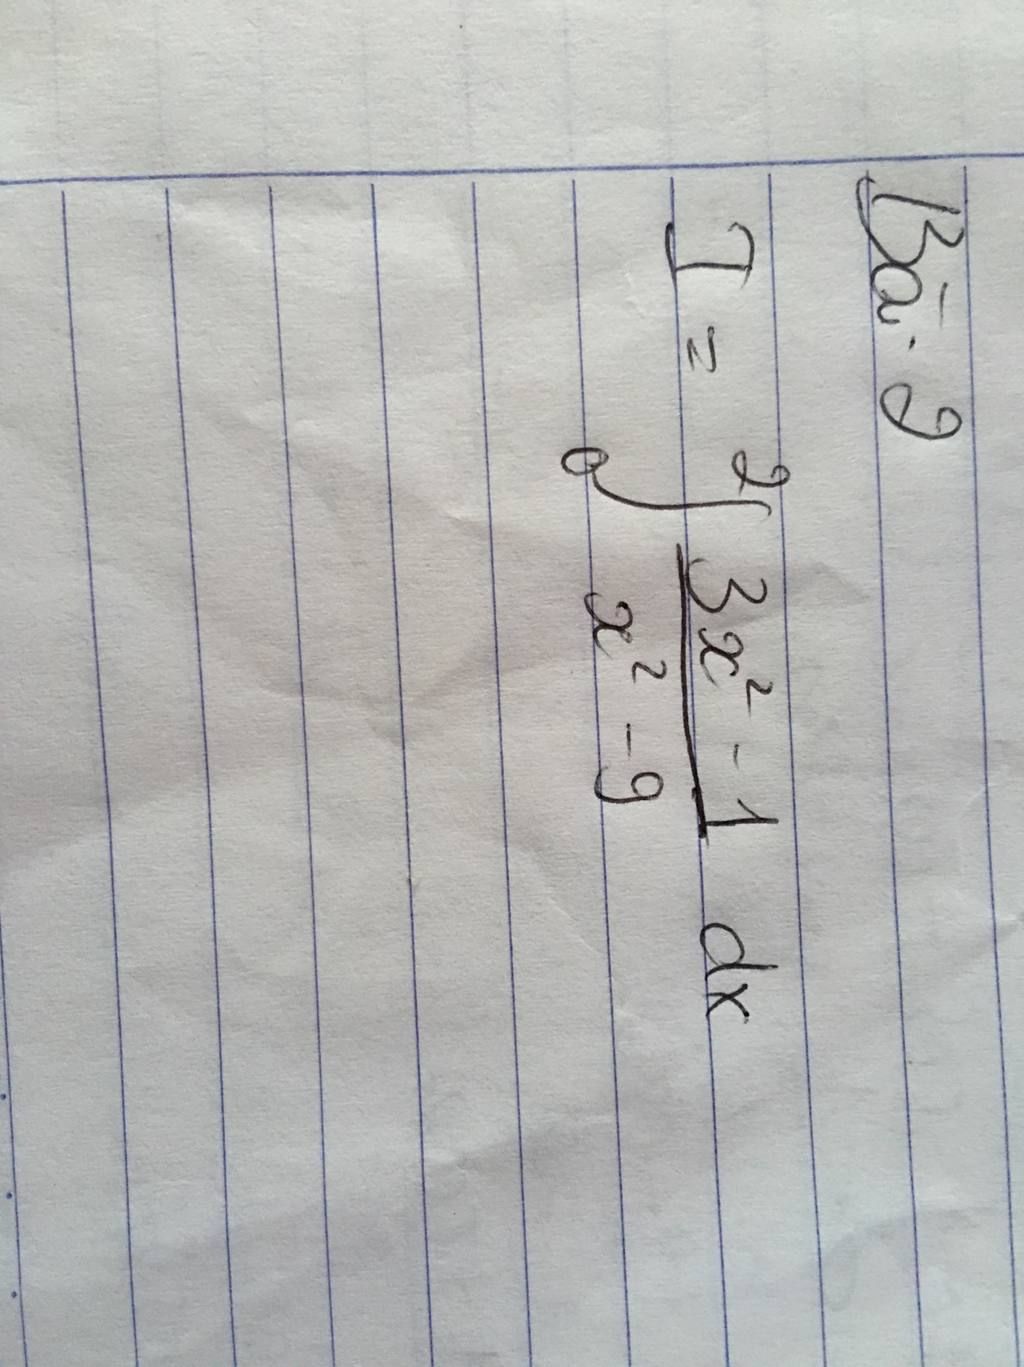 Bài 9
I = ²∫₀ (3x² - 1)/(x² - 9) dx